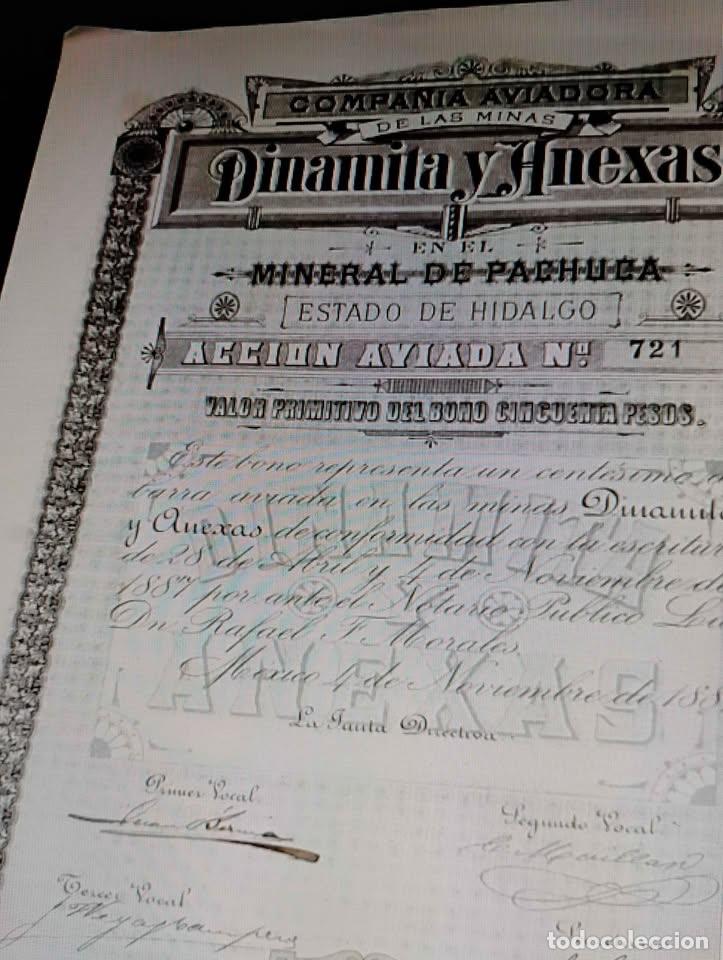 COMPAÑIA AVIADORA
DE LAS MINAS
Dinamita y Anexas
EN EL
MINERAL DE PACHUCA
[ESTADO DE HIDALGO]
ACCION AVIADA No. 721
VALOR PRIMITIVO DEL BONO CINCUENTA PESOS.
Este bono representa un centesimo
barra aviada en las minas Dinamita
y Anexas de conformidad con la escritura
de 28 de Abril y 4 de Noviembre de
1887 por ante el Notario Publico
Dn. Rafael F. Morales.
Mexico 4 de Noviembre de 188
La Junta Directiva
DINAMITA
Y
ANEXAS
Primer Vocal
Segundo Vocal
Tercer Vocal
todocoleccion